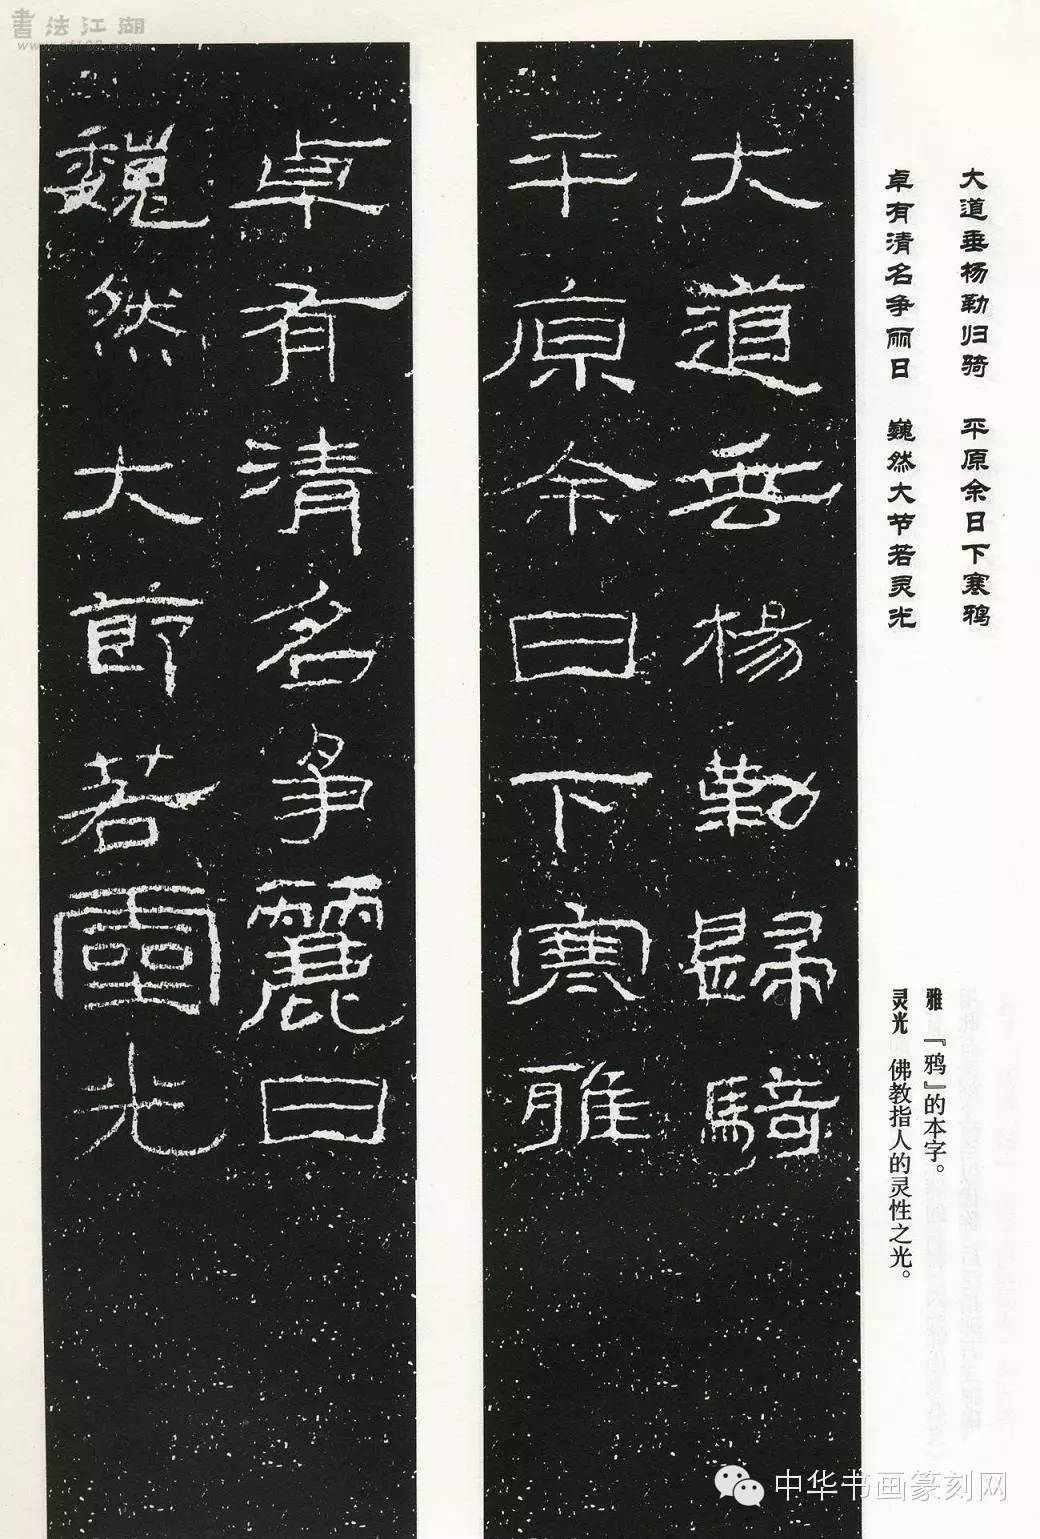 書法江湖
大道垂杨勒归骑 平原余日下寒鸦
卓有清名争丽日 巍然大节若灵光
雅 『鸦』的本字。
灵光 佛教指人的灵性之光。
大道垂楊勒歸騎
平原余日下寒雅
卓有清名爭麗日
巍然大節若靈光
中华书画篆刻网